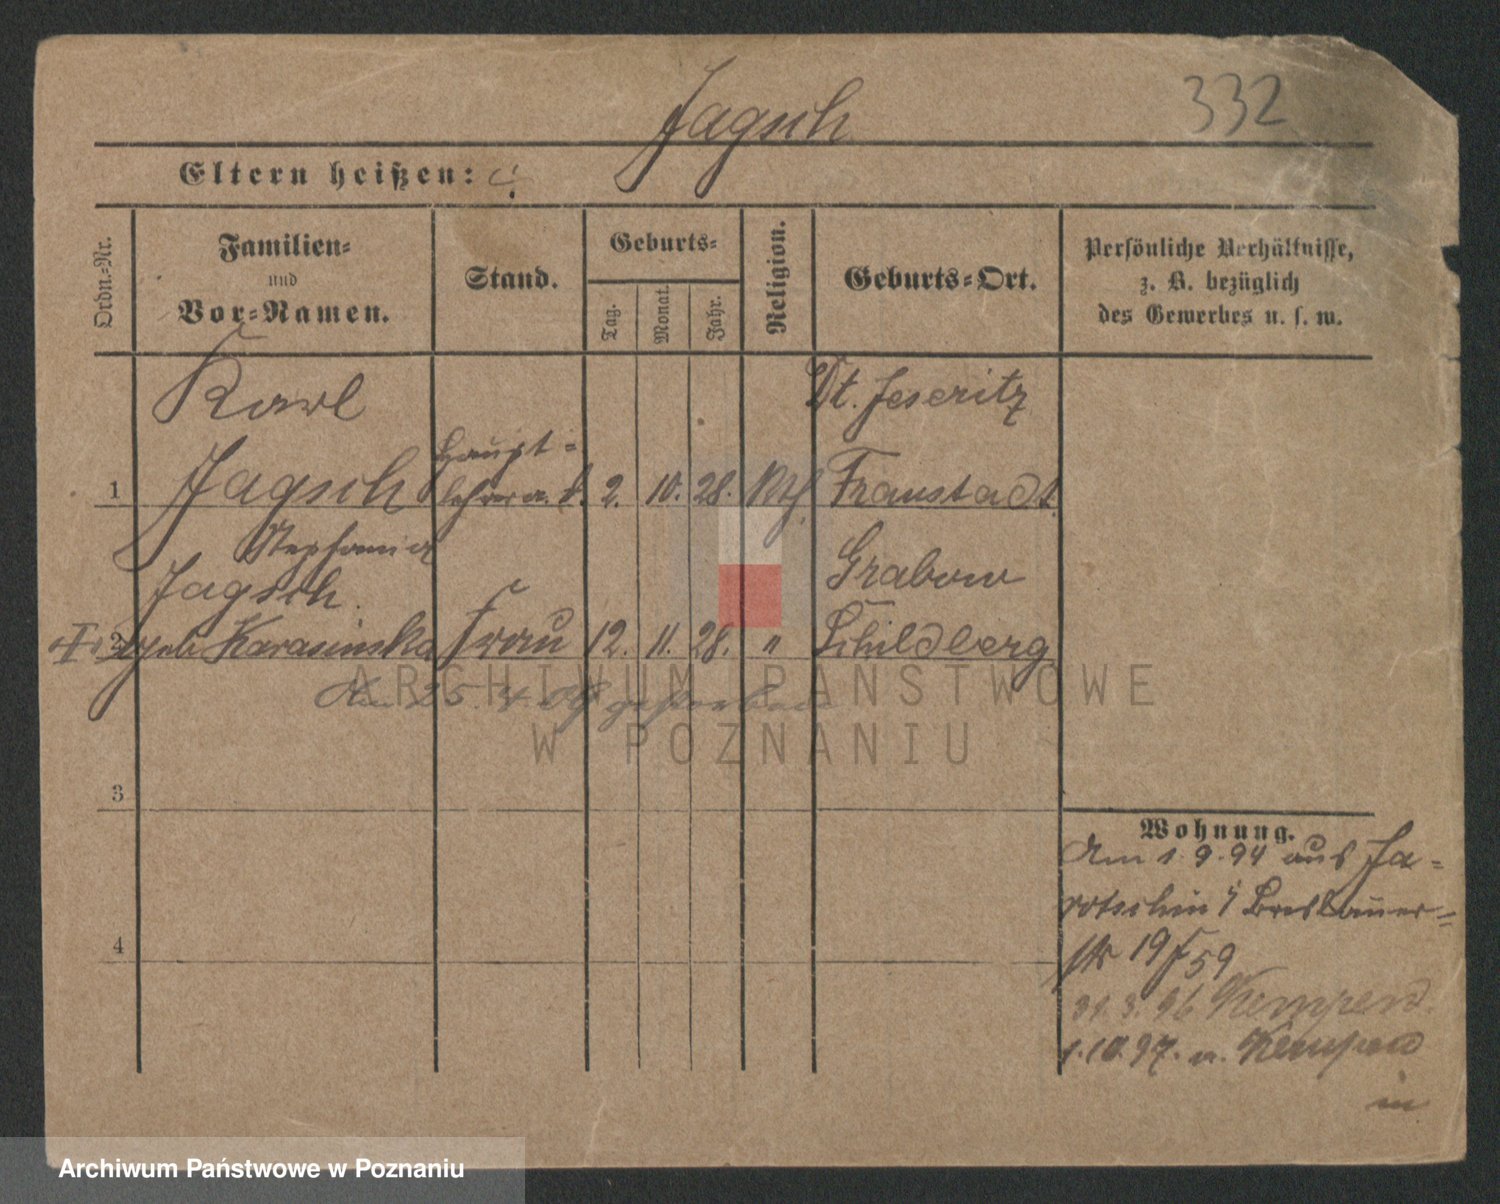 Jagsch
332
Eltern heißen:
Ordn.-Nr.
Familien-
und
Vor-Namen.
Stand.
Geburts-
Tag.
Monat.
Jahr.
Religion.
Geburts-Ort.
Persönliche Verhältnisse,
z. B. bezüglich
des Gewerbes u. s. w.
Karl
Dt. Jeseritz
Haupt-
1 Jagsch lehrer a. D. 2. 10. 28. Kth. Fraustadt
Stephania
Jagsch Grabow
2 geb Karasinska Frau 12. 11. 28. " Schildberg
Am 25. 4. gestorben
3
4
Wohnung.
Am 1. 9. 94 aus Ja-
rotschin Breslauer-
str 19 59
31. 3. 96 Kempen
1. 10. 97. n. Kempen
in
ARCHIWUM PAŃSTWOWE
W POZNANIU
Archiwum Państwowe w Poznaniu